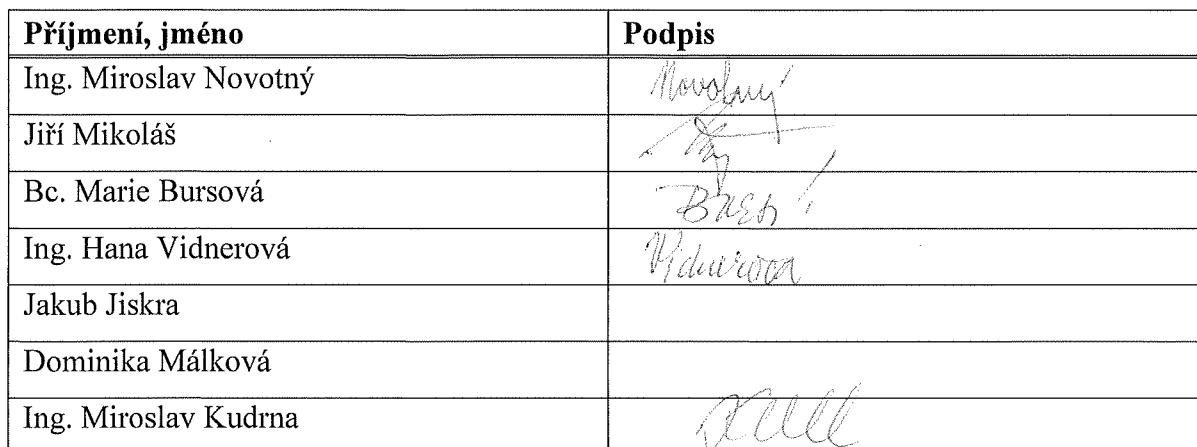 Příjmení, jméno Podpis
Ing. Miroslav Novotný Novotný
Jiří Mikoláš
Bc. Marie Bursová
Ing. Hana Vidnerová Vidnerová
Jakub Jiskra
Dominika Málková
Ing. Miroslav Kudrna